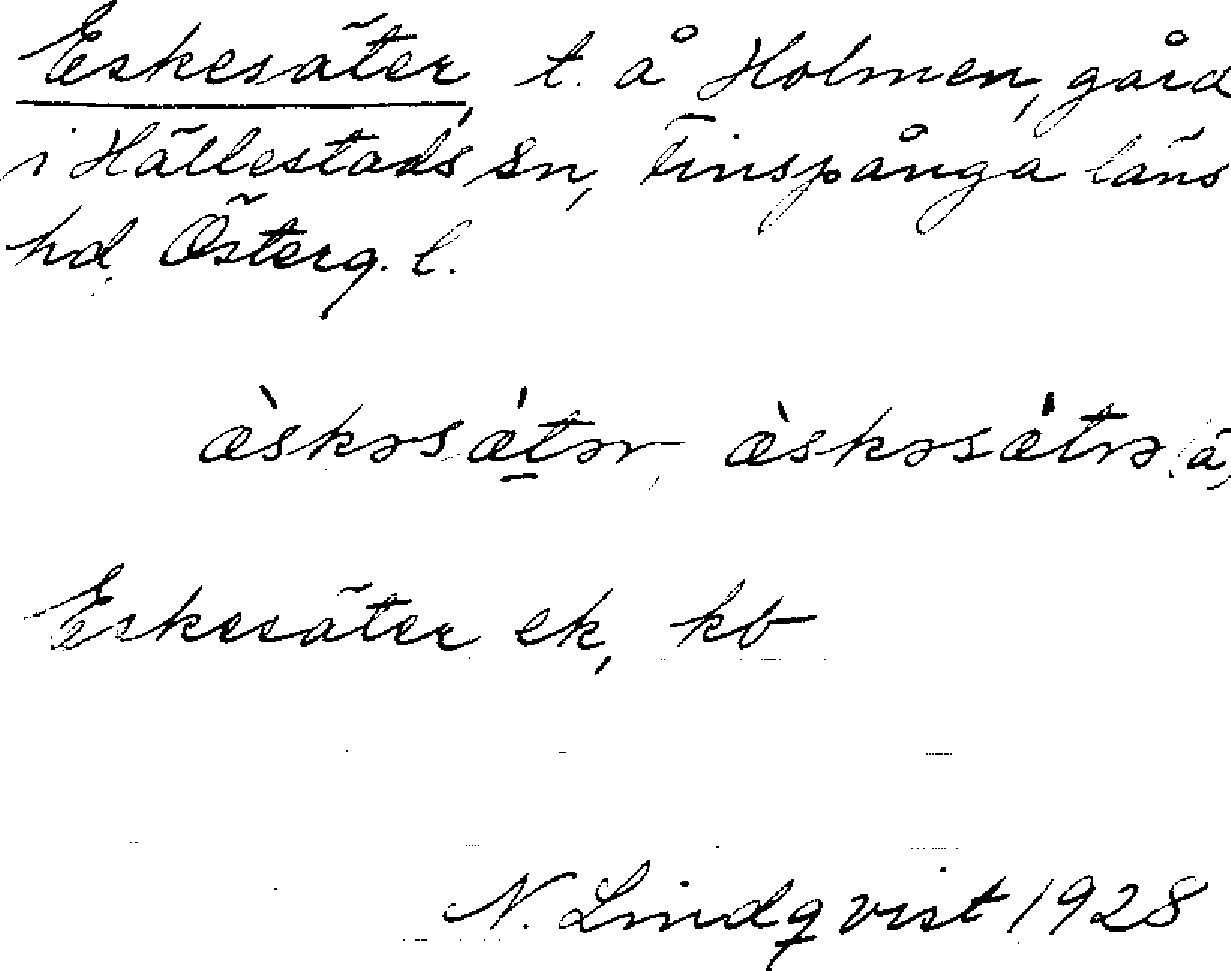 Eskesäter, t. å Holmen, gård
i Hällestads sn, Finspånga läns
hd Österg. l.
æ̀skəsǽtər, æ̀skəsǽtrə (ä)
Eskesäter ek, kb
N. Lindqvist 1928